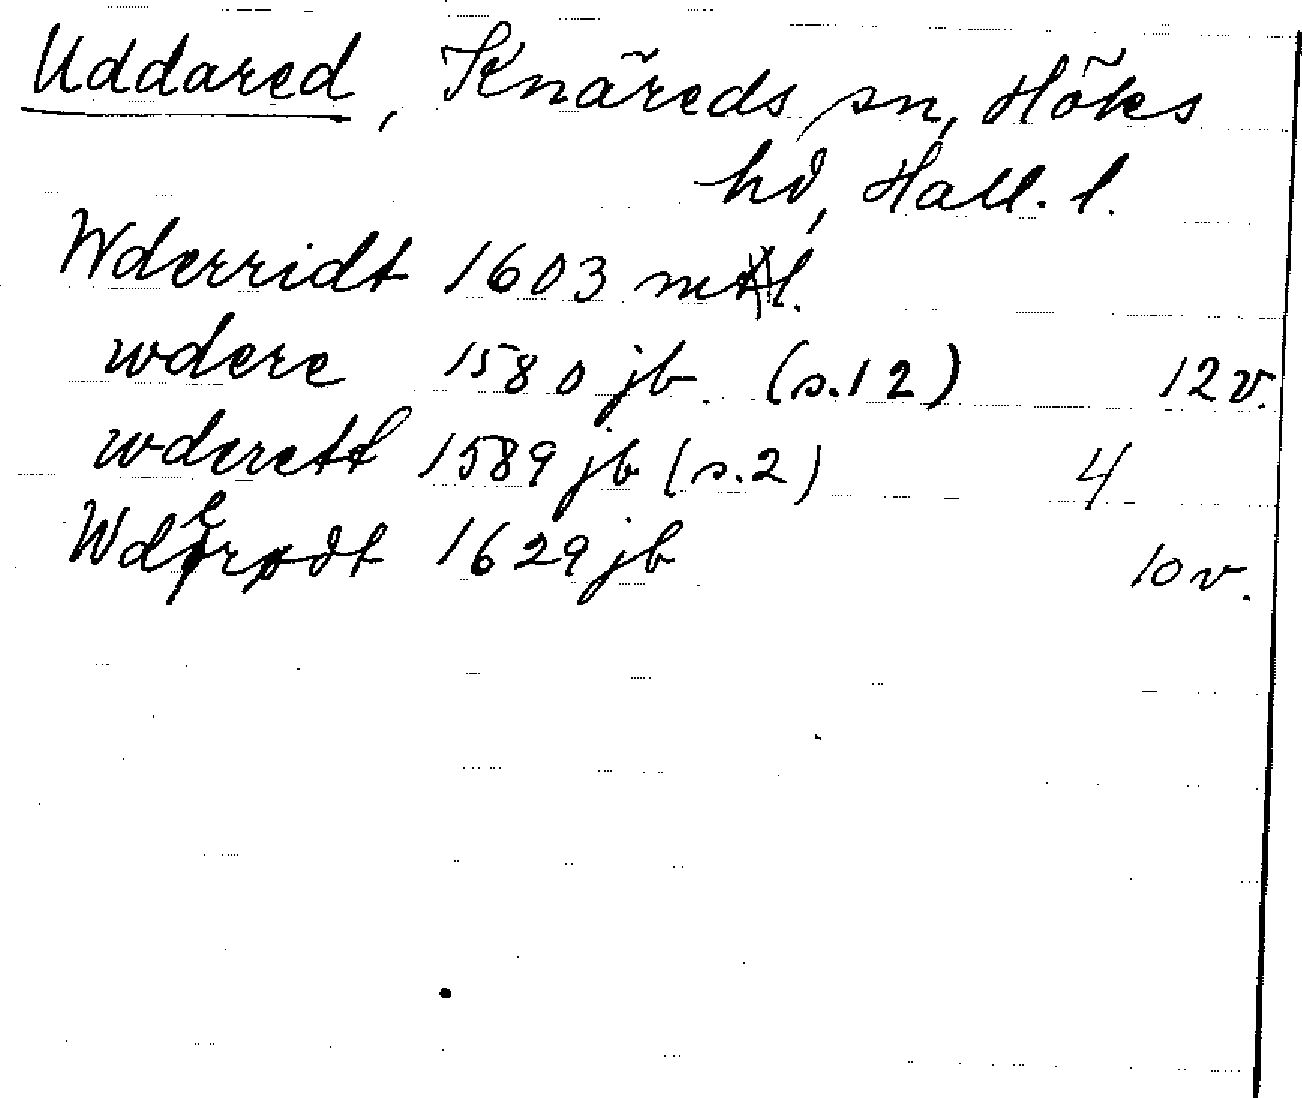 Uddared, Knäreds sn, Höks
hd, Hall. l.
Wderridt 1603 mtl.
wdere 1580 jb. (s.12) 12 v.
wderett 1589 jb (s.2) 4
Wderødt 1629 jb 10 v.